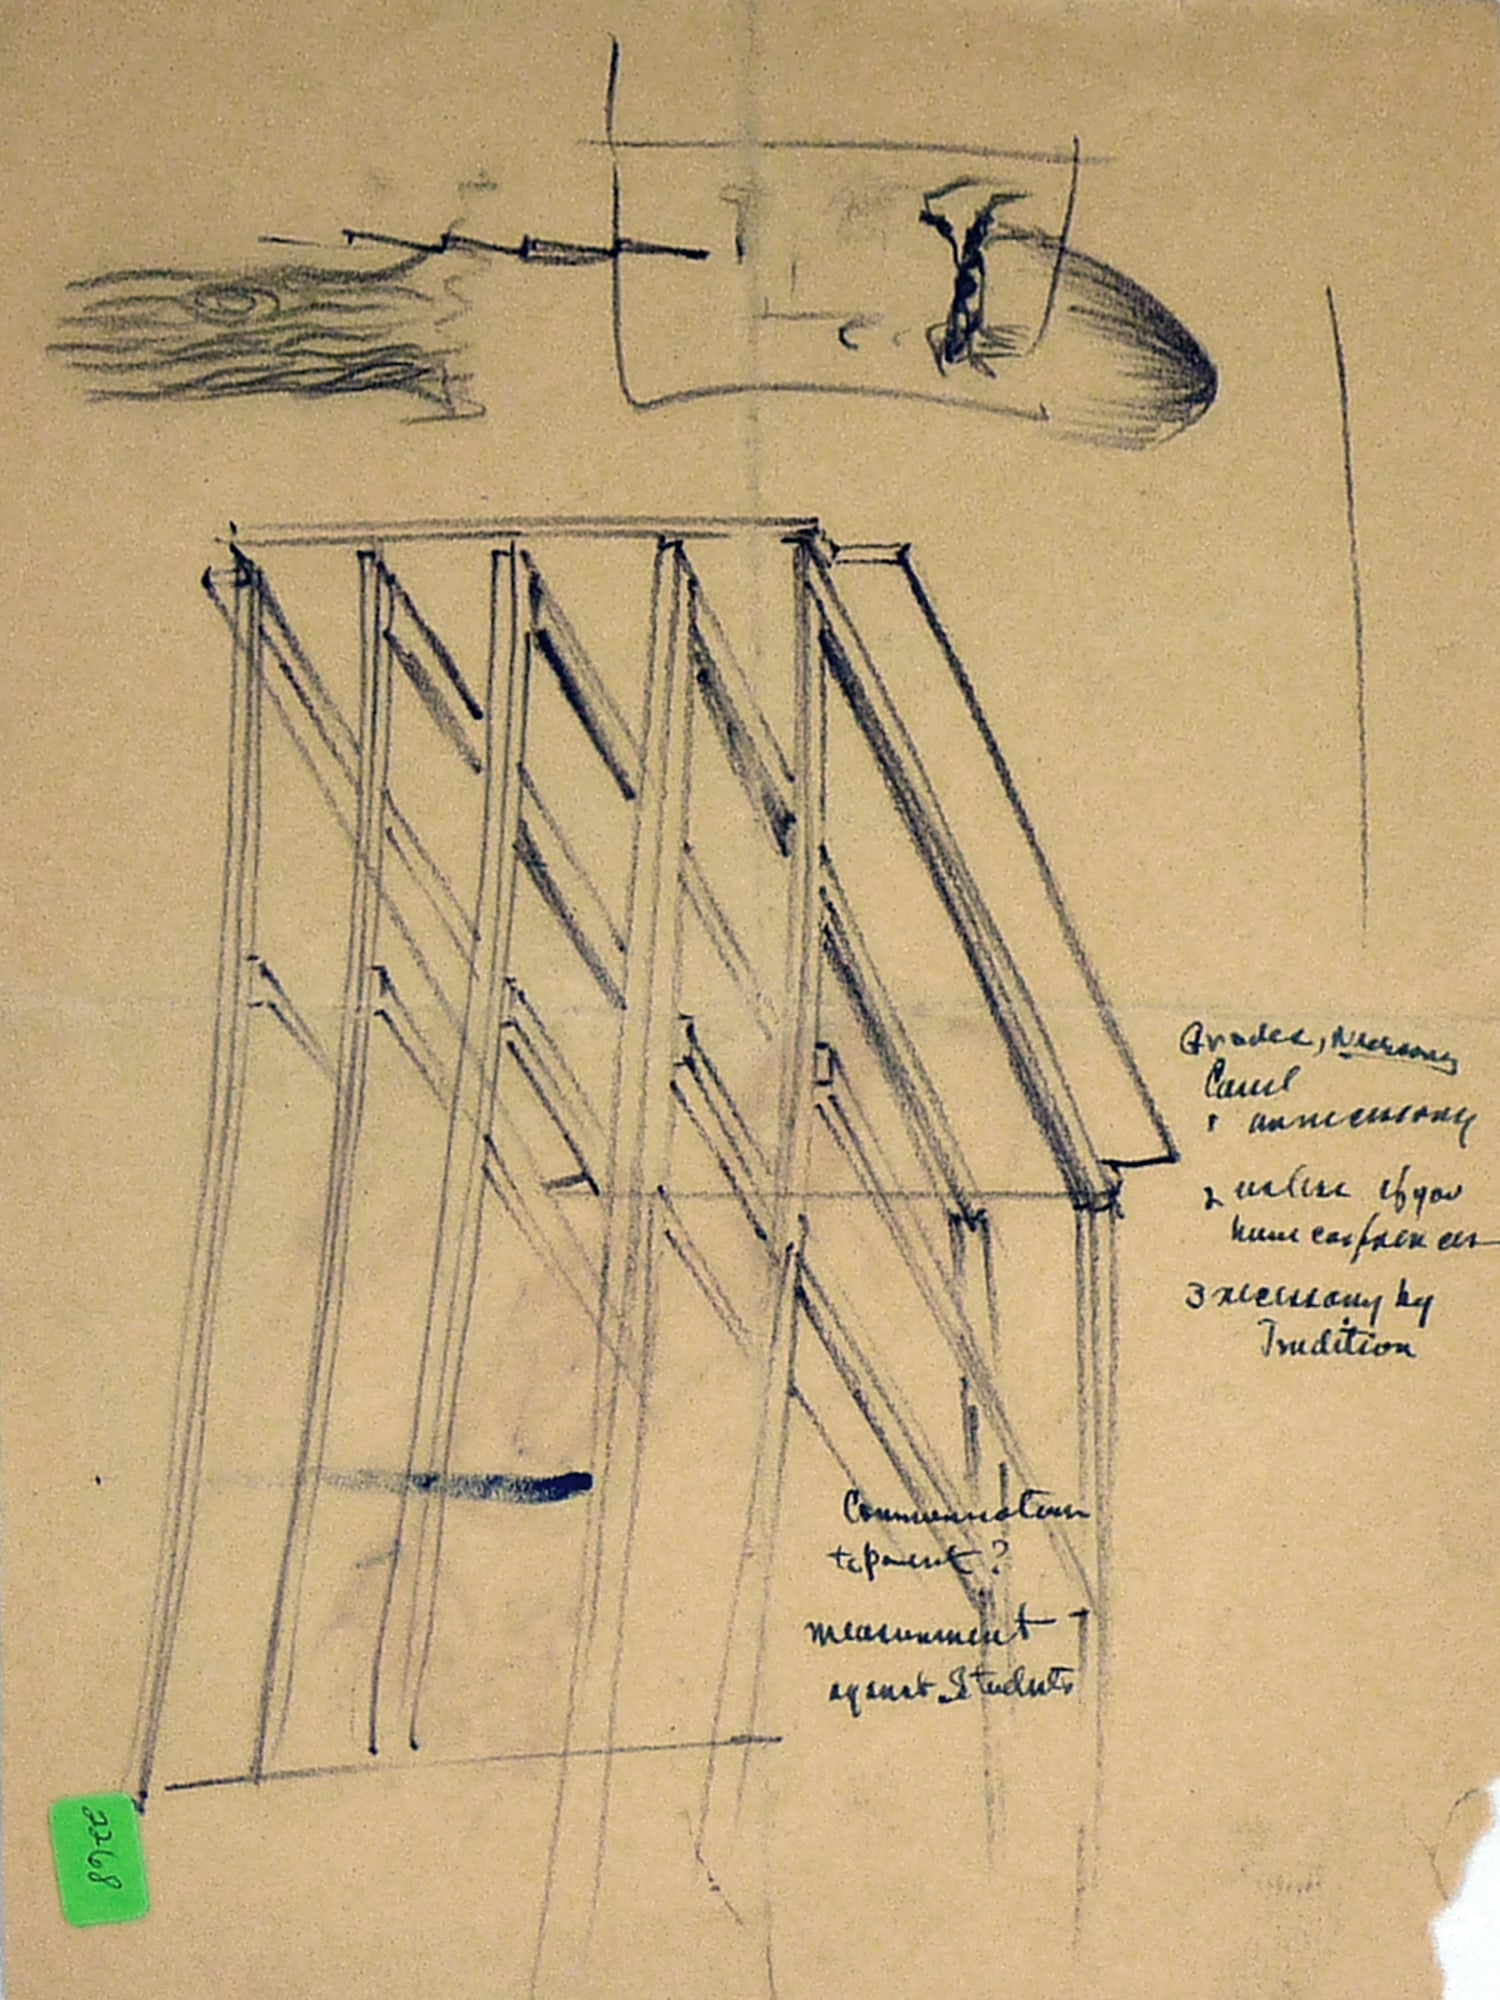 Grades, Necessary
Carl
1 unnecessary
2 useless if you
have conferences
3 necessary by
Tradition
Communication
to parent?
measurement
against Students
2268